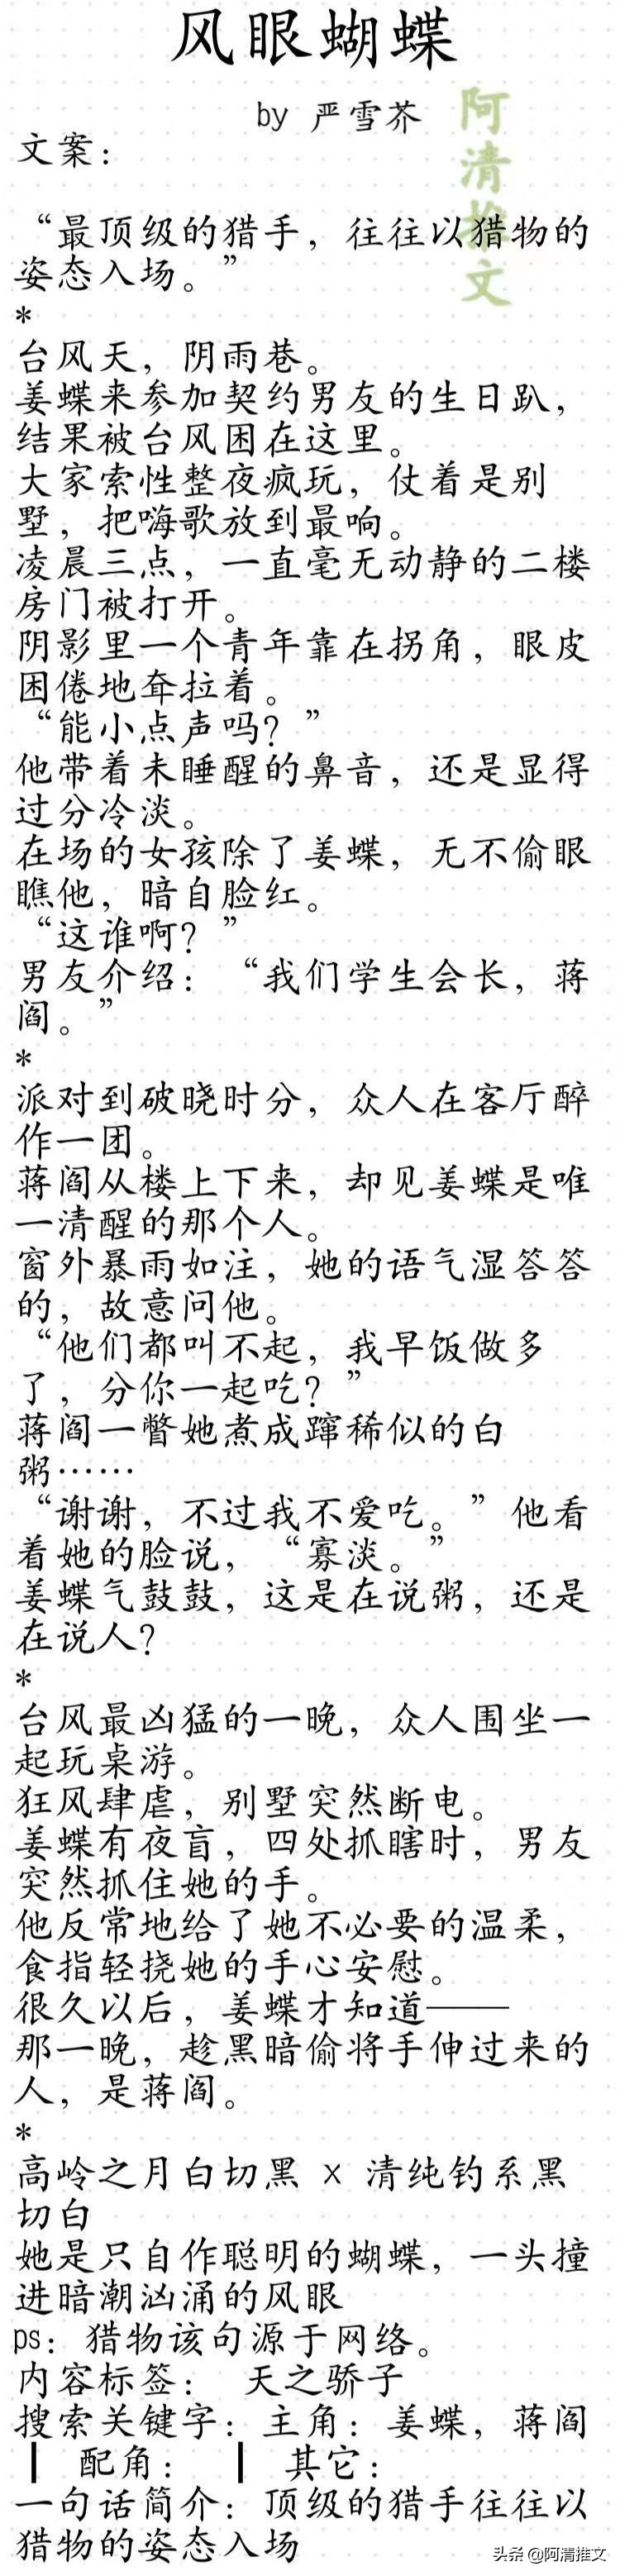 风眼蝴蝶
by 严雪芥
阿清推文
文案：
“最顶级的猎手，往往以猎物的
姿态入场。”
*
台风天，阴雨巷。
姜蝶来参加契约男友的生日趴，
结果被台风困在这里。
大家索性整夜疯玩，仗着是别
墅，把嗨歌放到最响。
凌晨三点，一直毫无动静的二楼
房门被打开。
阴影里一个青年靠在拐角，眼皮
困倦地耷拉着。
“能小点声吗？”
他带着未睡醒的鼻音，还是显得
过分冷淡。
在场的女孩除了姜蝶，无不偷眼
瞧他，暗自脸红。
“这谁啊？”
男友介绍：“我们学生会长，蒋
阎。”
*
派对到破晓时分，众人在客厅醉
作一团。
蒋阎从楼上下来，却见姜蝶是唯
一清醒的那个人。
窗外暴雨如注，她的语气湿答答
的，故意问他。
“他们都叫不起，我早饭做多
了，分你一起吃？”
蒋阎一瞥她煮成蹿稀似的白
粥……
“谢谢，不过我不爱吃。”他看
着她的脸说，“寡淡。”
姜蝶气鼓鼓，这是在说粥，还是
在说人？
*
台风最凶猛的一晚，众人围坐一
起玩桌游。
狂风肆虐，别墅突然断电。
姜蝶有夜盲，四处抓瞎时，男友
突然抓住她的手。
他反常地给了她不必要的温柔，
食指轻挠她的手心安慰。
很久以后，姜蝶才知道——
那一晚，趁黑暗偷将手伸过来的
人，是蒋阎。
*
高岭之月白切黑 x 清纯钓系黑
切白
她是只自作聪明的蝴蝶，一头撞
进暗潮汹涌的风眼
ps：猎物该句源于网络。
内容标签： 天之骄子
搜索关键字：主角：姜蝶，蒋阎
┃ 配角： ┃ 其它：
一句话简介：顶级的猎手往往以
猎物的姿态入场
头条 @阿清推文